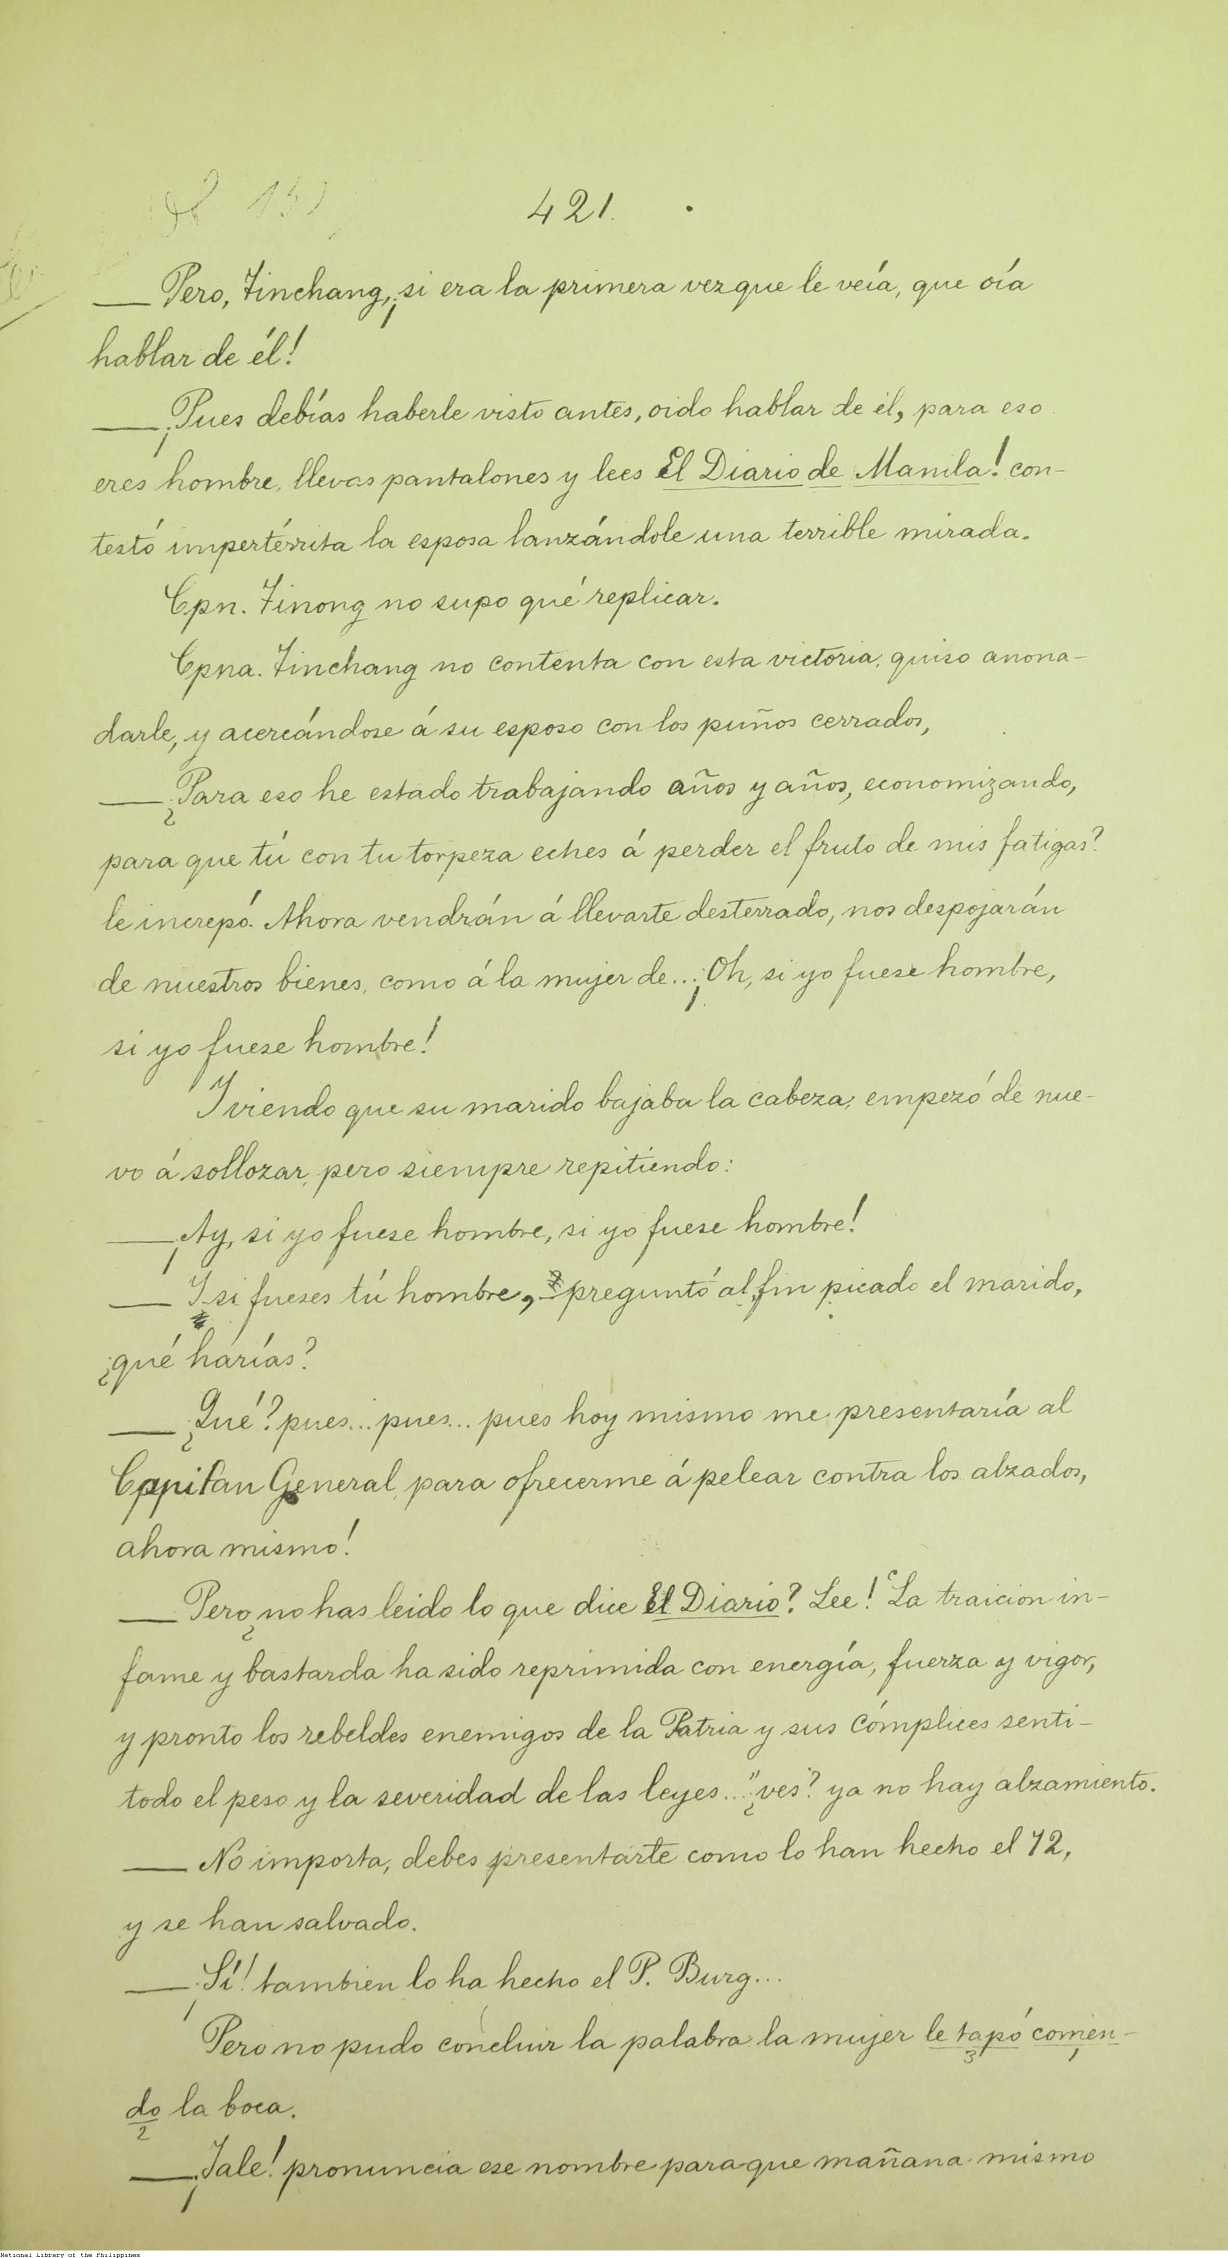 421.
— Pero, Tinchang, ¡si era la primera vez que le veía, que oía
hablar de él!
— ¡Pues debías haberle visto antes, oido hablar de él, para eso
eres hombre, llevas pantalones y lees El Diario de Manila! con-
testó impertérrita la esposa lanzándole una terrible mirada.
Cpn. Tinong no supo qué replicar.
Cpna. Tinchang no contenta con esta victoria, quiso anona-
darle, y acercándose á su esposo con los puños cerrados,
— ¿Para eso he estado trabajando años y años, economizando,
para que tú con tu torpeza eches á perder el fruto de mis fatigas?
le increpó. Ahora vendrán á llevarte desterrado, nos despojarán
de nuestros bienes, como á la mujer de... ¡Oh, si yo fuese hombre,
si yo fuese hombre!
Y viendo que su marido bajaba la cabeza, empezó de nue-
vo á sollozar, pero siempre repitiendo:
— ¡Ay, si yo fuese hombre, si yo fuese hombre!
— Y si fueses tú hombre, - preguntó al fin picado el marido,
¿qué harías?
— ¿Qué? pues... pues... pues hoy mismo me presentaría al
Capitan General, para ofrecerme á pelear contra los alzados,
ahora mismo!
— Pero ¿no has leido lo que dice El Diario? Lee! "La traicion in-
fame y bastarda ha sido reprimida con energía, fuerza y vigor,
y pronto los rebeldes enemigos de la Patria y sus cómplices senti-
todo el peso y la severidad de las leyes..." ¿ves? ya no hay alzamiento.
— No importa, debes presentarte como lo han hecho el 72,
y se han salvado.
— ¡Sí! tambien lo ha hecho el P. Burg...
Pero no pudo concluir la palabra la mujer le tapó corrien-
3
do la boca.
2
— ¡Dale! pronuncia ese nombre para que mañana mismo
National Library of the Philippines